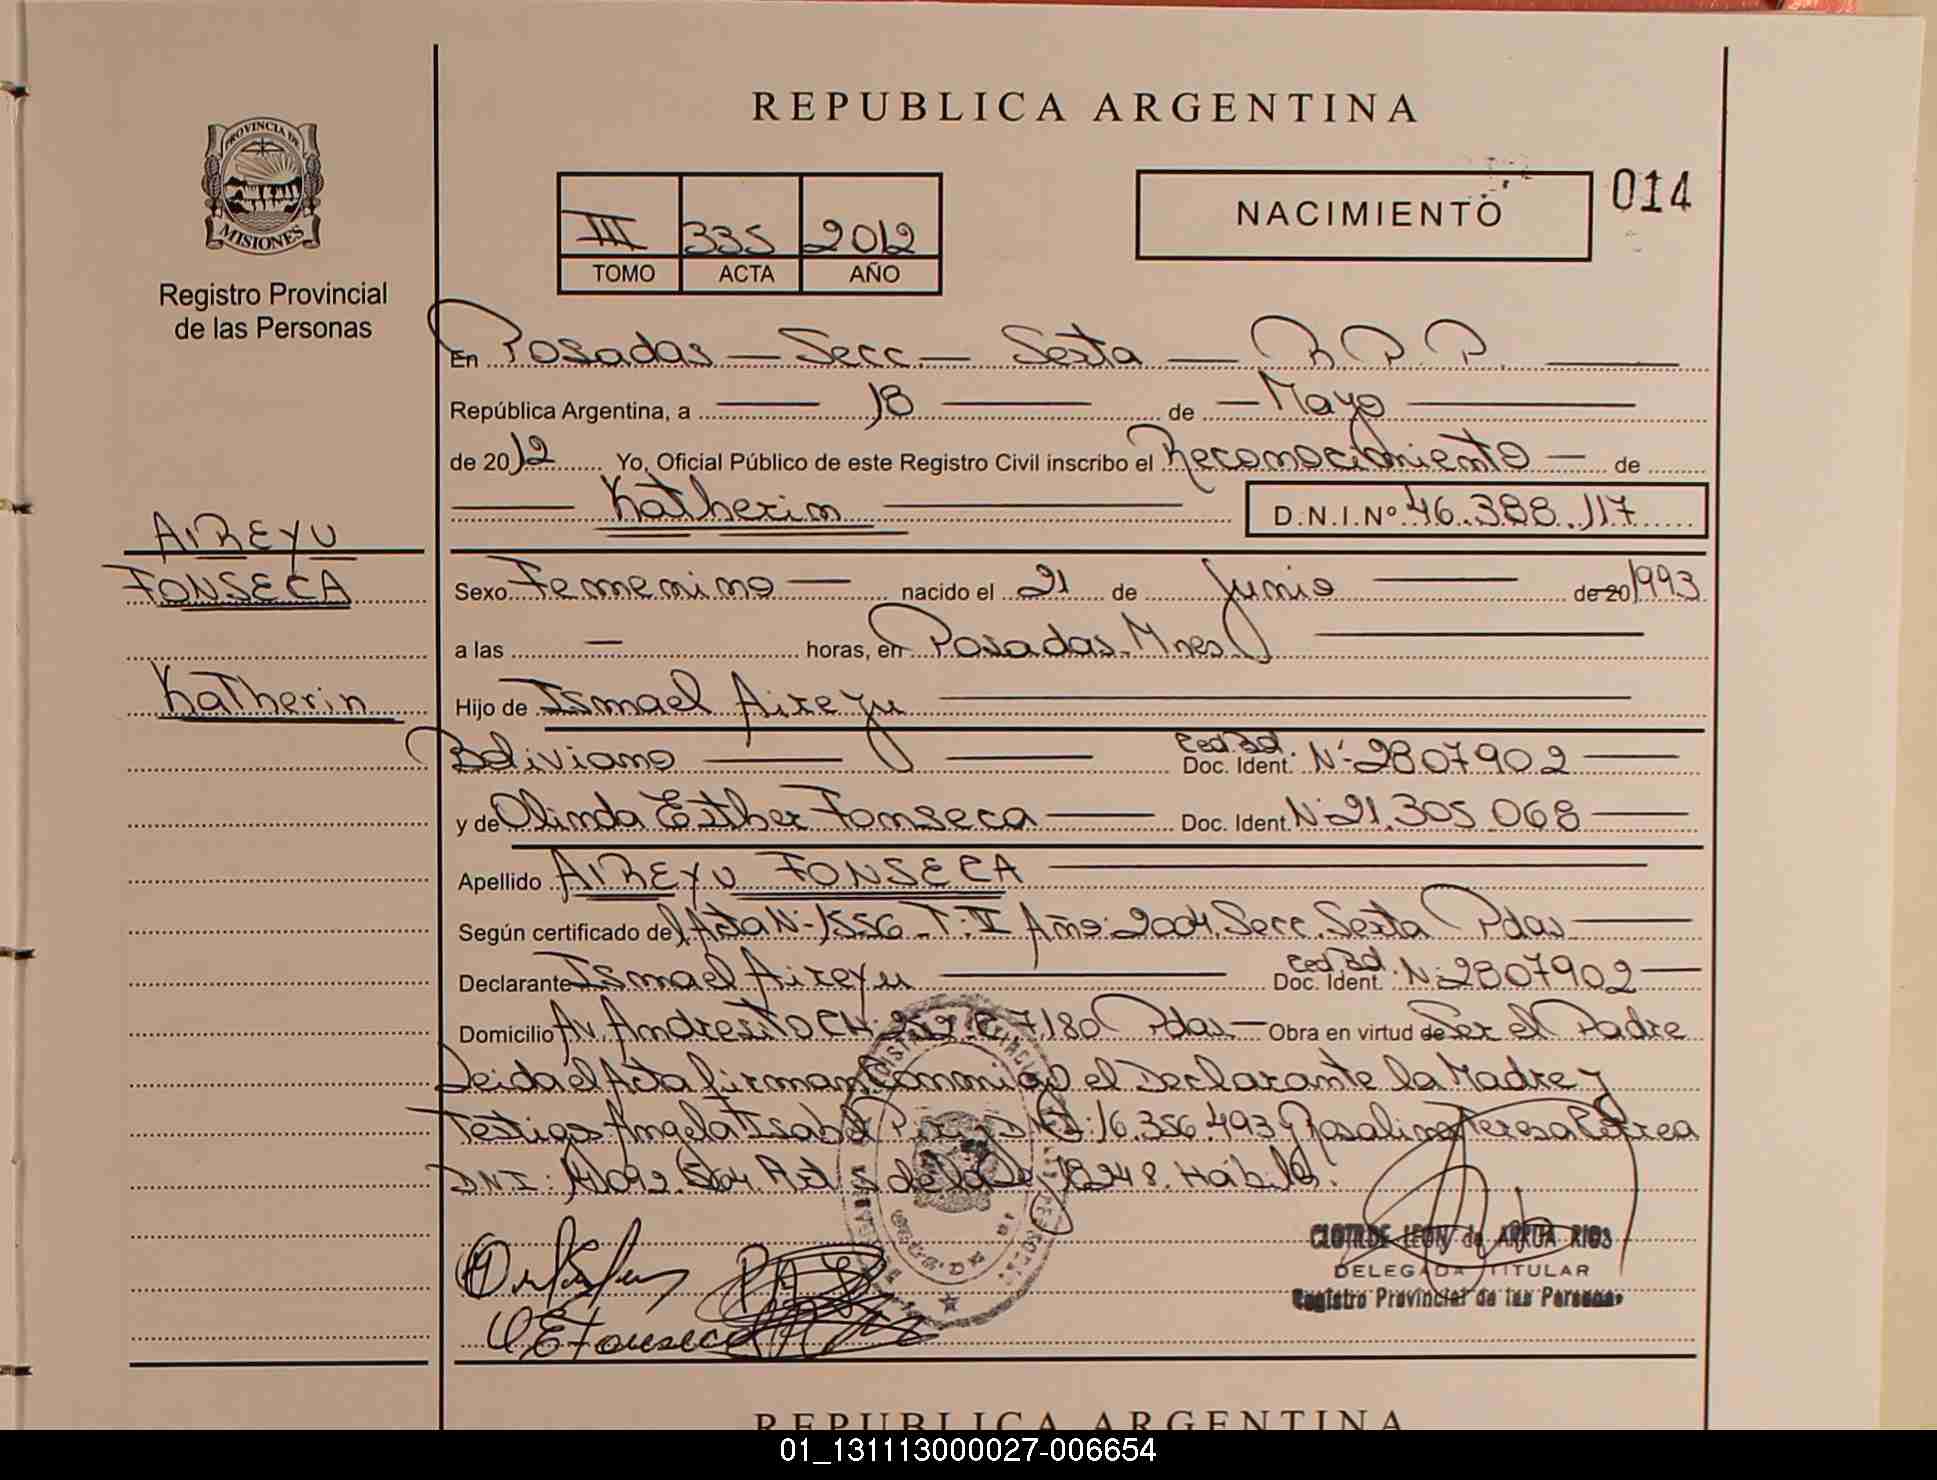 REPUBLICA ARGENTINA
PROVINCIA DE
MISIONES
Registro Provincial
de las Personas
III 335 2012
TOMO ACTA AÑO
NACIMIENTO
014
En Posadas — Secc. — Sexta — R.P.P.
República Argentina, a — 18 — de — Mayo —
de 2012 Yo, Oficial Público de este Registro Civil inscribo el Reconocimiento — de
— Katherin —
D.N.I.Nº 46.388.117
AIREYU
FONSECA
Katherin
Sexo Femenino — nacido el 21 de Junio — de 20 1993
a las — horas, en Posadas. Mnes —
Hijo de Ismael Aireyu —
Boliviano — Ced. Bol. Doc. Ident. Nº 2807902 —
y de Olinda Esther Fonseca — Doc. Ident. Nº 21.305.068 —
Apellido AIREYU FONSECA —
Según certificado del Acta Nº 1556 - T: II Año: 2004. Secc. Sexta Pdas —
Declarante Ismael Aireyu — Ced. Bol. Doc. Ident. Nº 2807902 —
Domicilio Av. Andresito CH: C 7.180 Pdas — Obra en virtud de Ser el Padre
Leida el Acta firman Conmigo el Declarante la Madre y
Testigos Angela Isabel DNI: 16.356.493 y Rosalina Teresa Correa
DNI: Art 5 de la Ley 18248. Habil.
O E Fonseca
CLOTILDE LEON de ARRUA RIOS
DELEGADA TITULAR
Registro Provincial de las Personas
REPUBLICA ARGENTINA
01_131113000027-006654